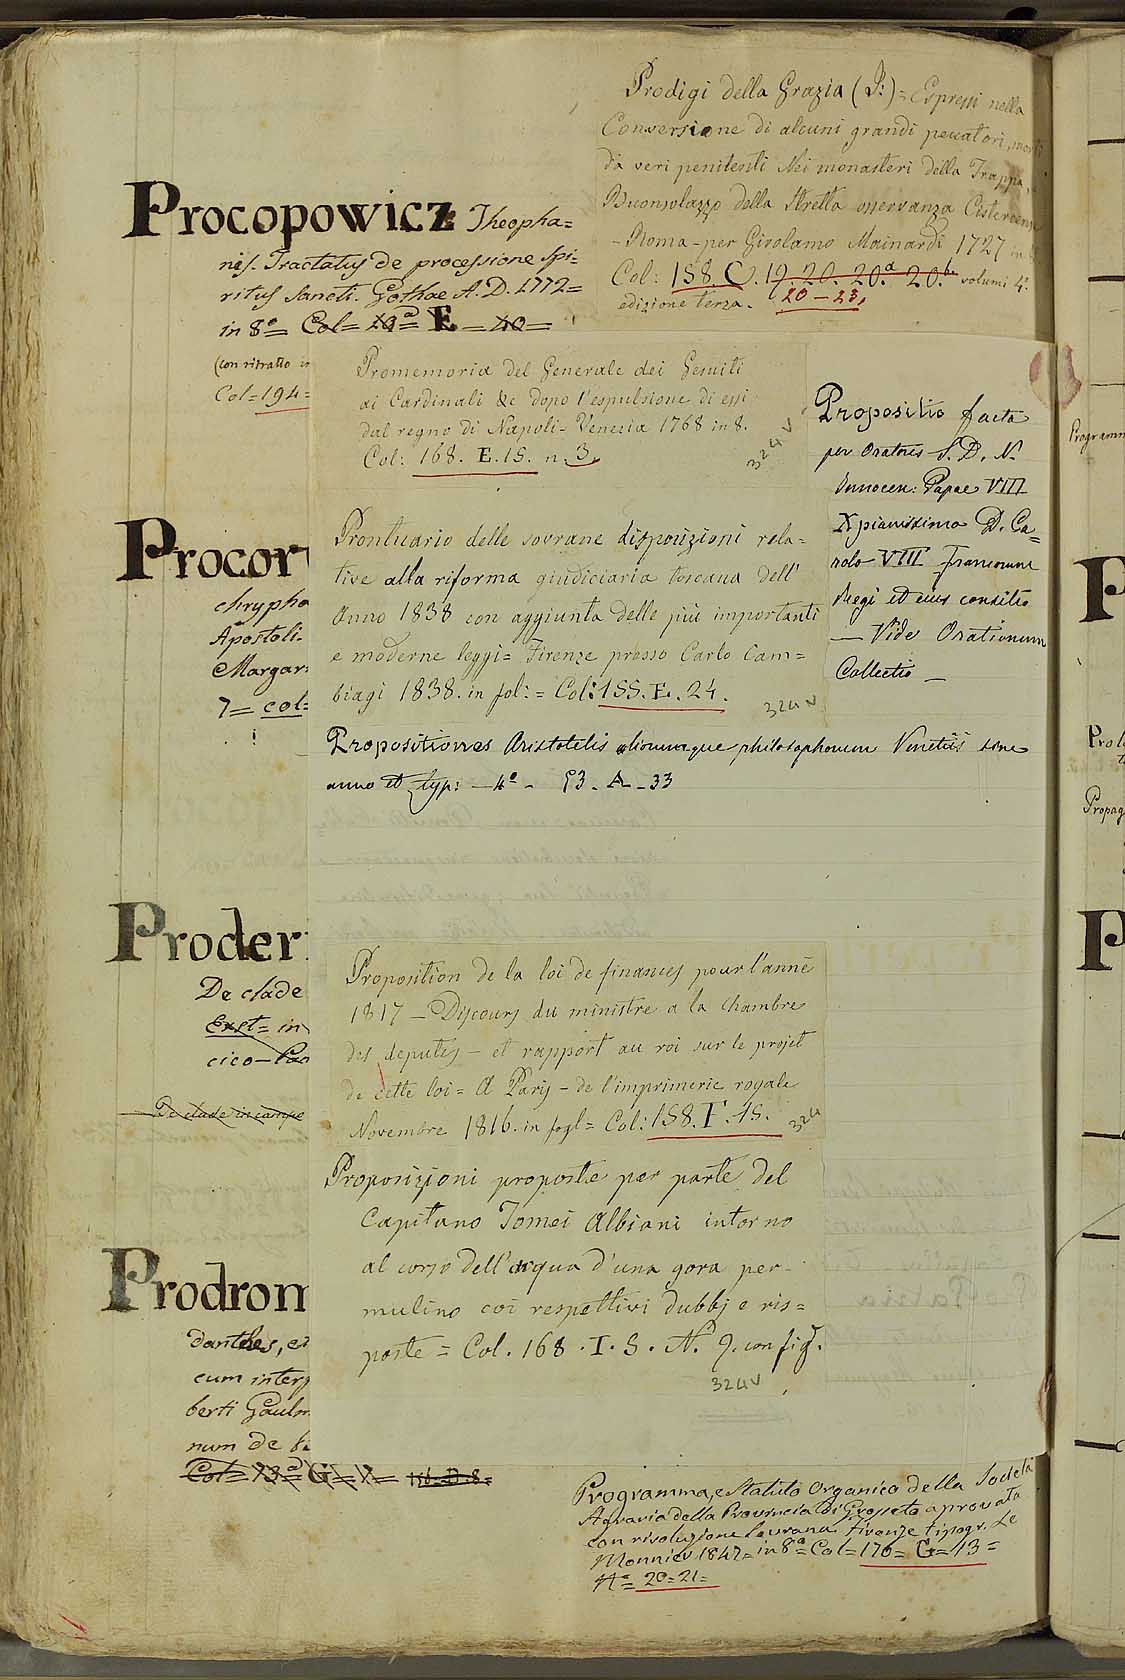 Prodigi della Grazia (I:) = Espressi nella
Conversione di alcuni grandi peccatori, morti
da veri penitenti Nei monasteri della Trappa,
Buonsolazzo della stretta osservanza Cistercense
- Roma - per Girolamo Mainardi 1727 in
Col: 158. C. 19. 20. 20.a 20.b volumi 4.
20 - 23.
edizione terza.
Procopowicz Theopha=
nis. Tractatus de processione Spi=
ritus Sancti. Gothae A. D. 1772=
in 8º= Col= 19= E - 40=
(con ritratto in
Col=194=
Promemoria del Generale dei Gesuiti
ai Cardinali &c dopo l'espulsione di essi
dal regno di Napoli - Venezia 1768 in 8.
Col: 168. E. 15. n. 3.
324 v
Propositio facta
per Oratores S. D. N.
Innocen: Papae VIII
Xpianissimo D. Ca=
rolo VIII Francorum
Regi et eius consilio
— Vide Orationum
Collectio —
Procor
chrypho
Apostoli.
Margar:
7= col=
Prontuario delle sovrane disposizioni rela=
tive alla riforma giudiciaria toscana dell'
Anno 1838 con aggiunta delle più importanti
e moderne leggi= Firenze presso Carlo Cam=
biagi 1838. in fol: = Col: 155. E. 24.
324 v
Propositiones Aristotelis aliorumque philosophorum Venetiis sine
anno et typ: - 4º - 93 - A - 33
Proder
De clade
Exst= in
cico-
De clade in campo
Proposition de la loi de finances pour l'anné
1817 - Discours du ministre a la Chambre
des deputés - et rapport au roi sur le projet
de cette loi = A Paris - de l'imprimerie royale
Novembre 1816. in fogl= Col: 158. F. 15.
324
Proposizioni proposte per parte del
Capitano Tomei Albiani intorno
al corso dell'acqua d'una gora per
mulino coi respettivi dubbj e ris=
poste = Col. 168. I. 5. N. 9. con fig.
324 v
Prodrom
danthes, e
cum interp
berti Gaulm
num de
Col= 73= G=
Programma, e Statuto Organico della Società
Agraria della Provincia di Grosseto aprovata
con risoluzione Sovrana Firenze tipogr. Le
Monnier 1847= in 8º= Col= 170= G= 13=
Nº= 20=21=
Programm
Propag
P
P